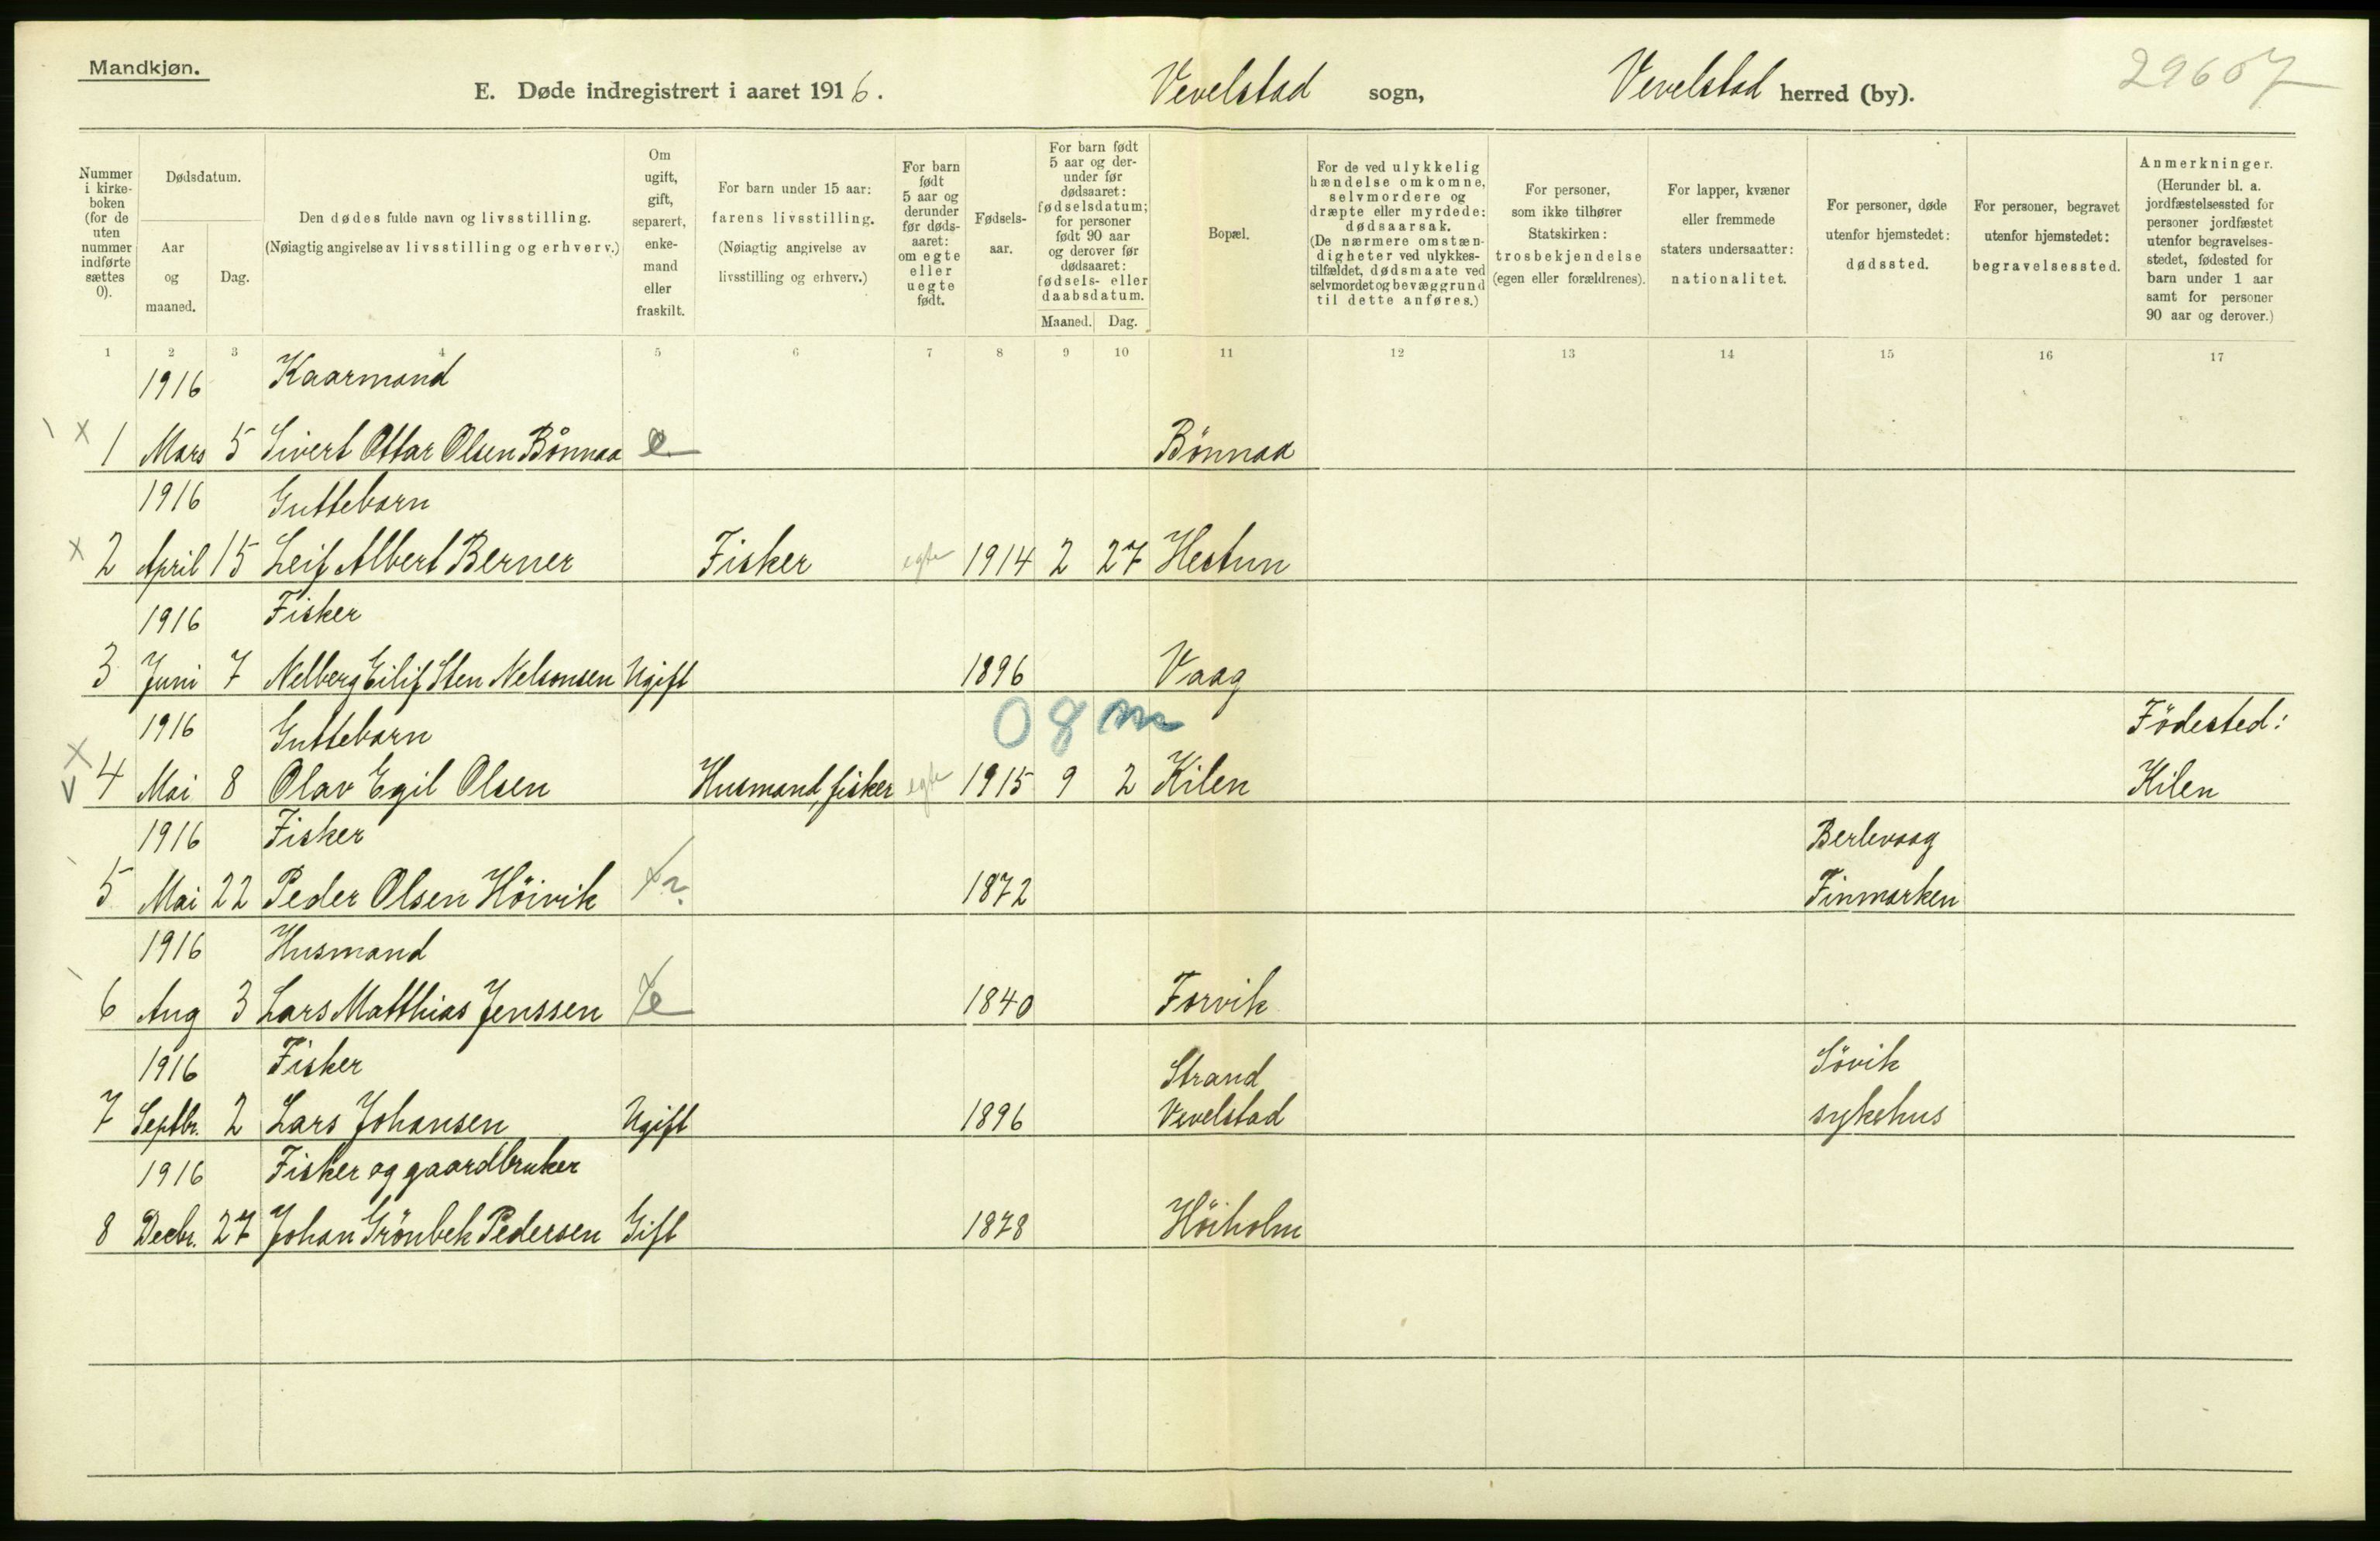 Mandkjøn.
E. Døde indregistrert i aaret 1916. Vevelstad sogn, Vevelstad herred (by).
29607
Nummer i kirke-boken (for de uten nummer indførte sættes 0).
Dødsdatum.
Aar og maaned.
Dag.
Den dødes fulde navn og livsstilling.
(Nøiagtig angivelse av livsstilling og erhverv.)
Om ugift, gift, separert, enke-mand eller fraskilt.
For barn under 15 aar: farens livsstilling.
(Nøiagtig angivelse av livsstilling og erhverv.)
For barn født 5 aar og derunder før døds-aaret: om egte eller uegte født.
Fødsels-aar.
For barn født 5 aar og der-under før dødsaaret: fødselsdatum; for personer født 90 aar og derover før dødsaaret: fødsels- eller daabsdatum.
Maaned. Dag.
Bopæl.
For de ved ulykkelig hændelse omkomne, selvmordere og dræpte eller myrdede: dødsaarsak.
(De nærmere omstæn-digheter ved ulykkes-tilfældet, dødsmaate ved selvmordet og bevæggrund til dette anføres.)
For personer, som ikke tilhører Statskirken: trosbekjendelse (egen eller forældrenes).
For lapper, kvæner eller fremmede staters undersaatter: nationalitet.
For personer, døde utenfor hjemstedet: dødssted.
For personer, begravet utenfor hjemstedet: begravelsessted.
Anmerkninger.
(Herunder bl. a. jordfæstelsessted for personer jordfæstet utenfor begravelses-stedet, fødested for barn under 1 aar samt for personer 90 aar og derover.)
1 2 3 4 5 6 7 8 9 10 11 12 13 14 15 16 17
1916 Kaarmand
x 1 Mars 5 Sivert Ottar Olsen Bönnaa e Bönnaa
1916 Guttebarn
x 2 April 15 Leif Albert Berner Fisker egte 1914 2 27 Hestun
1916 Fisker
3 Juni 7 Nelberg Eilif Sten Nelsonsen Ugift 1896 Vaag
1916 Guttebarn 0 8 m Födested:
x 4 Mai 8 Olav Egil Olsen Husmand, fisker egte 1915 9 2 Kilen Kilen
1916 Fisker Berlevaag
5 Mai 22 Peder Olsen Höivik x? 1872 Finmarken
1916 Husmand
6 Aug 3 Lars Matthias Jenssen e 1840 Forvik
1916 Fisker Strand Sövik
7 Septbr. 2 Lars Johansen Ugift 1896 Vevelstad sykehus
1916 Fisker og gaardbruker
8 Decbr. 27 Johan Grönbek Pedersen Gift 1878 Höiholm